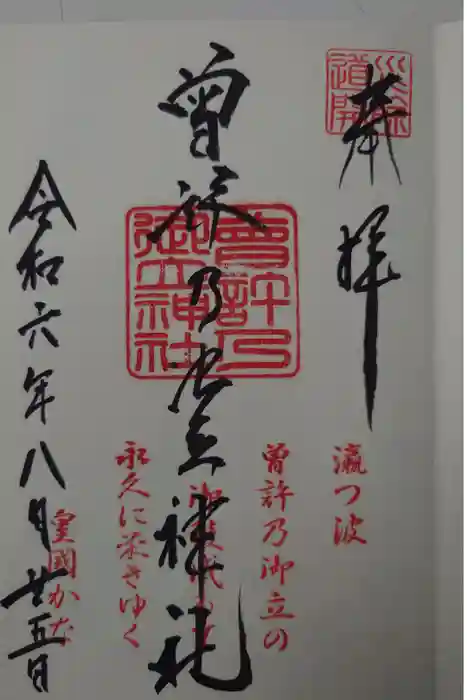 災除
道開
奉拝
瀛つ波
曽許乃御立の
曾許乃
御立神社
曽許乃御立神社
永久に栄きゆく
皇國かな
令和六年八月廿五日